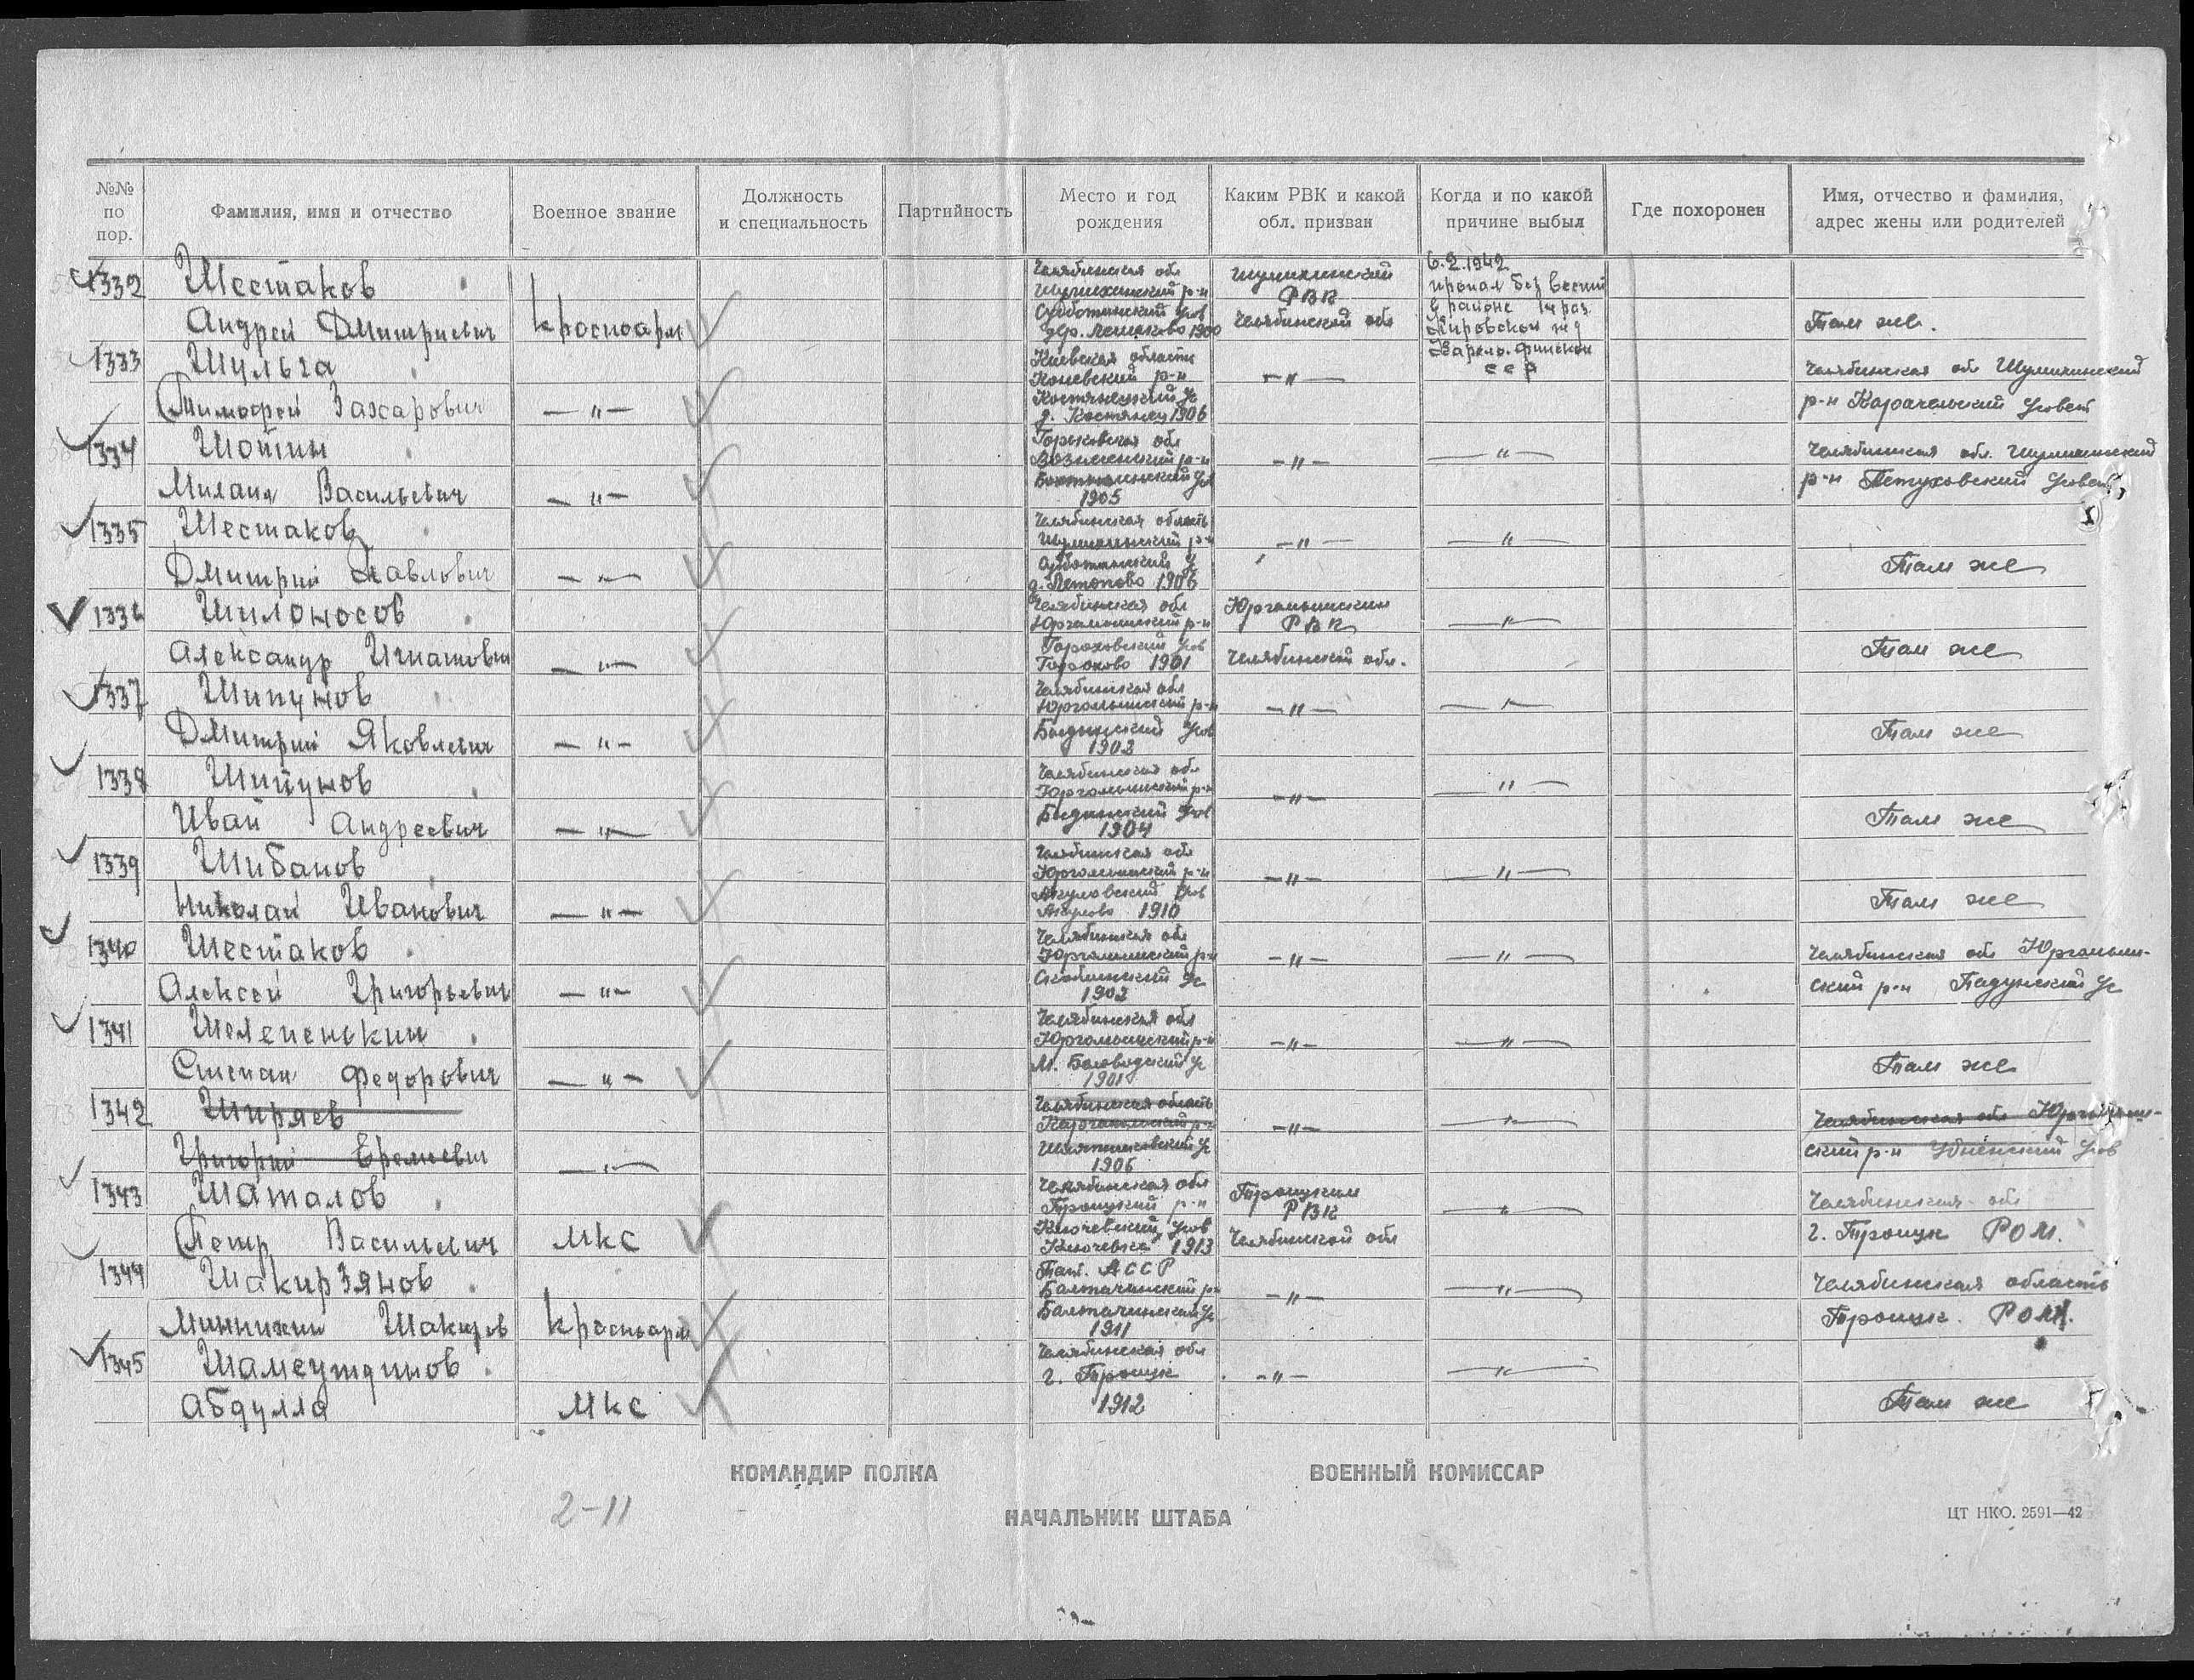 №№ по пор.
Фамилия, имя и отчество
Военное звание
Должность и специальность
Партийность
Место и год рождения
Каким РВК и какой обл. призван
Когда и по какой причине выбыл
Где похоронен
Имя, отчество и фамилия, адрес жены или родителей
1332 Шестаков Челябинская обл Шумихинский 6.2.1942
Шумихинский р-н РВК пропал без вести
Андрей Дмитриевич Красноарм 1900 Челябинской обл в районе Там же.
Кировской ж д
1333 Шульга Киевская область Карело-Финской Челябинская обл Шумихинский
р-н —"— ССР р-н Карачельский с/совет
Тимофей Захарович —"— д. Костянец 1906
1334 Шотин Горьковская обл Челябинская обл. Шумихинский
Вознесенский р-н —"— —"— р-н Петуховский с/совет
Василевич —"— 1905
1335 Шестаков Челябинская область
Шумихинский р-н —"— —"—
Дмитрий Павлович —"— 1906 Там же
1336 Шилоносов Челябинская обл Юргамышским
Юргамышский р-н РВК —"—
Александр Игнатович —"— Гороховский с/сов Челябинской обл. Там же
Горохово 1901
1337 Шипунов Челябинская обл
Юргамышский р-н —"— —"—
Дмитрий Яковлевич —"— с/сов Там же
1903
1338 Шипунов Челябинская обл
Юргамышский р-н —"— —"—
Иван Андреевич —"— с/сов Там же
1904
1339 Шибанов Челябинская обл
Юргамышский р-н —"— —"—
Николай Иванович —"— Акуловский с/сов Там же
Акулово 1910
1340 Шестаков Челябинская обл Челябинская обл Юргамыш-
Юргамышский р-н —"— —"— ский р-н Падунский с/с
Алексей Григорьевич —"— Скоблинский с/с
1903
1341 Шелепенькин Челябинская обл
Юргамышский р-н —"— —"—
Степан Федорович —"— с/с Там же
1901
1342 Ширяев Челябинская область Челябинская обл Юргамыш-
р-н —"— —"— ский р-н с/сов
Григорий Еремеевич —"— с/с
1906
1343 Шаталов Челябинская обл Троицким Челябинская обл
Троицкий р-н РВК —"—
Петр Васильевич МКС Ключевский с/сов Челябинской обл г. Троицк РОМ.
Ключевка 1913
1344 Шакирзянов Тат. АССР Челябинская область
Балтачинский р-н —"— —"—
Миннихан Шакиров Красноарм Балтачинский с/с Троицк. РОМ.
1911
1345 Шамсутдинов Челябинская обл
г. Троицк —"— —"—
Абдулла МКС 1912 Там же
КОМАНДИР ПОЛКА
ВОЕННЫЙ КОМИССАР
2-11
НАЧАЛЬНИК ШТАБА
ЦТ НКО. 2591—42